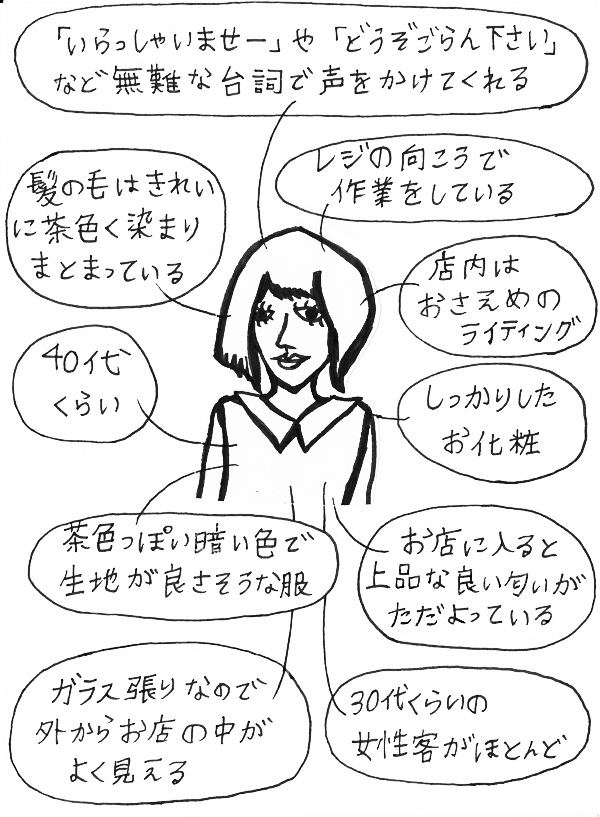 「いらっしゃいませー」や「どうぞごらん下さい」
など無難な台詞で声をかけてくれる
レジの向こうで
作業をしている
髪の毛はきれい
に茶色く染まり
まとまっている
店内は
おさえめの
ライティング
40代
くらい
しっかりした
お化粧
茶色っぽい暗い色で
生地が良さそうな服
お店に入ると
上品な良い匂いが
ただよっている
ガラス張りなので
外からお店の中が
よく見える
30代くらいの
女性客がほとんど